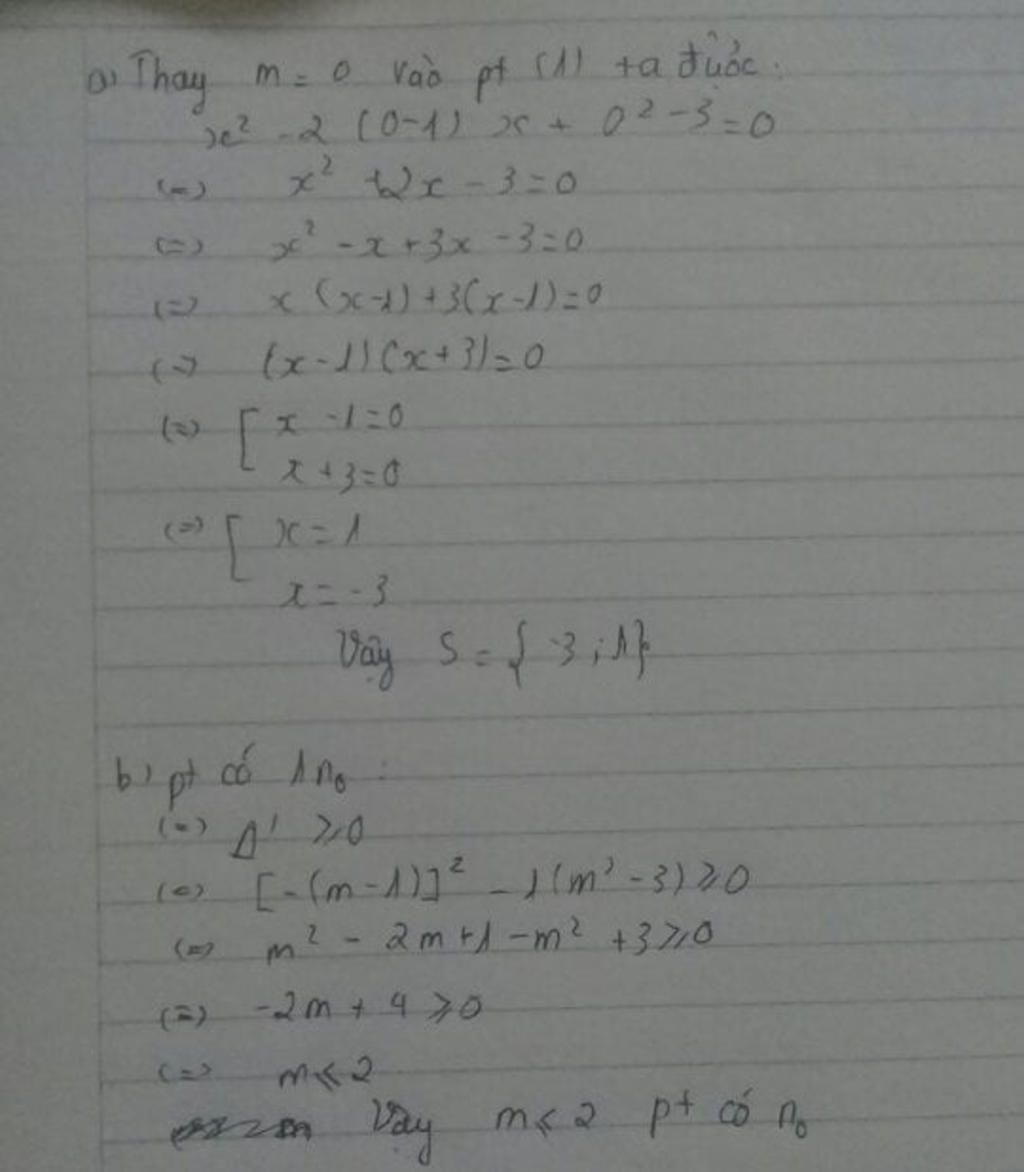 a) Thay m = 0 vào pt (1) ta được:
x² - 2 (0-1) x + 0² - 3 = 0
(=) x² + 2x - 3 = 0
(=) x² - x + 3x - 3 = 0
(=) x (x-1) + 3(x-1) = 0
(=) (x-1)(x+3) = 0
(=) [ x - 1 = 0
x + 3 = 0
(=) [ x = 1
x = -3
Vậy S = { -3 ; 1}
b) pt có 1 n₀ :
(=) Δ' ⩾ 0
(=) [-(m-1)]² - 1(m² - 3) ⩾ 0
(=) m² - 2m + 1 - m² + 3 ⩾ 0
(=) -2m + 4 ⩾ 0
(=) m ⩽ 2
Vậy m ⩽ 2 pt có n₀